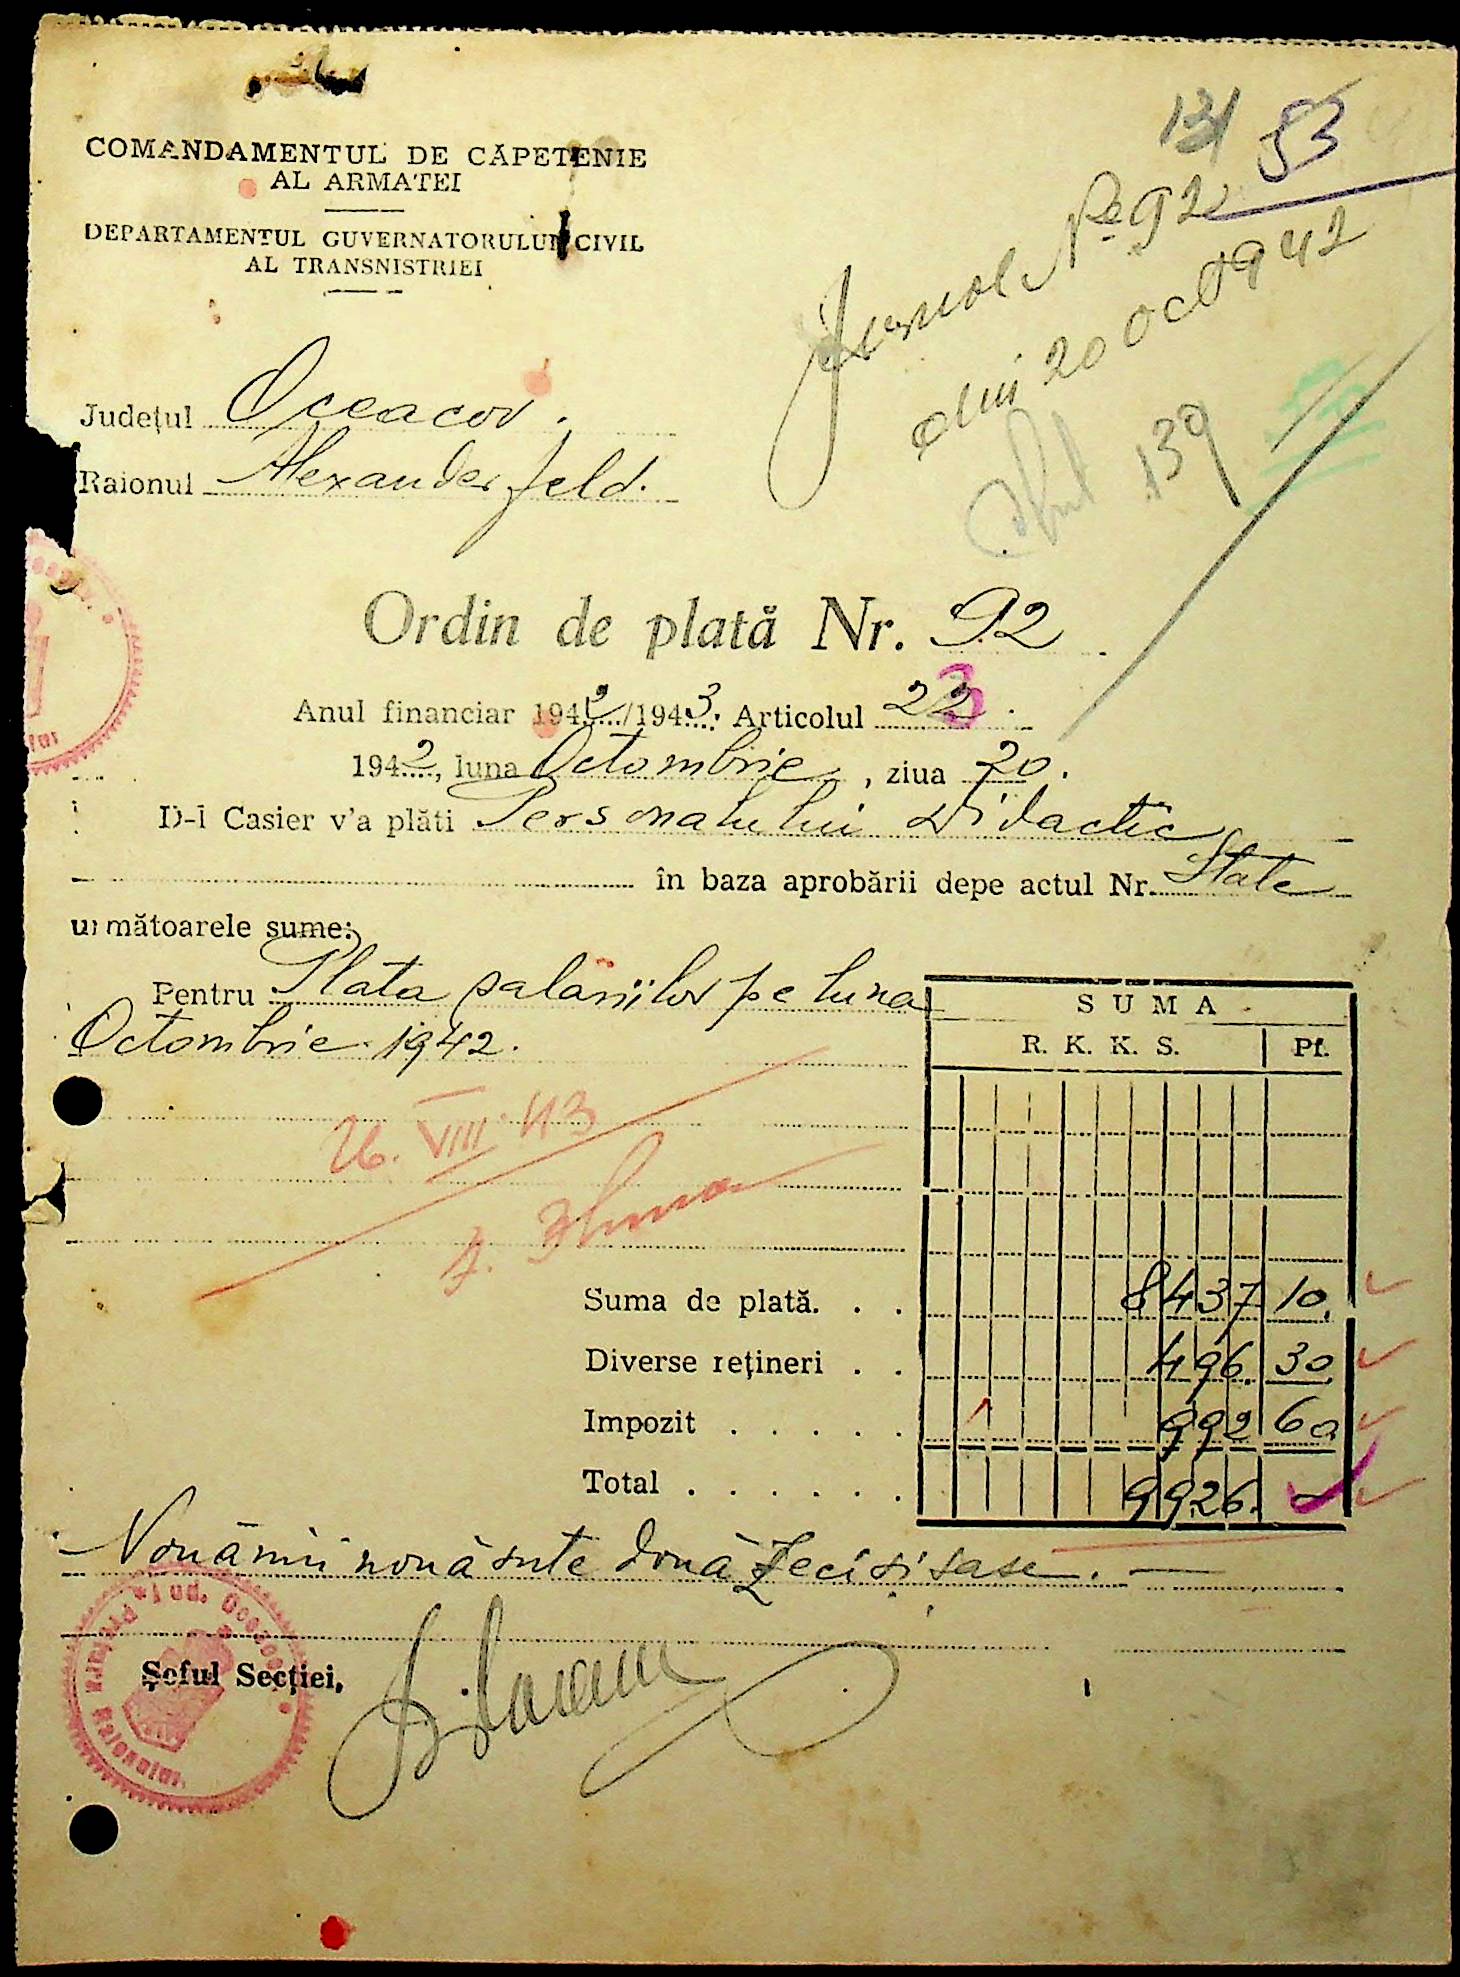 131 53
COMANDAMENTUL DE CĂPETENIE
AL ARMATEI
DEPARTAMENTUL GUVERNATORULUI CIVIL
AL TRANSNISTRIEI
Jurnal No 92
din 20 Oct 1942
139
Județul Oceacov.
Raionul Alexanderfeld.
Ordin de plată Nr. 92
Anul financiar 1942/1943. Articolul 23.
1942, luna Octombrie, ziua 20.
D-l Casier v'a plăti Personalului Didactic
în baza aprobării depe actul Nr. State
următoarele sume:
Pentru Plata salariilor pe luna
Octombrie 1942.
SUMA
R. K. K. S. Pf.
26. VIII. 43
Suma de plată. . . 8437 10.
Diverse rețineri . . 496. 30.
Impozit . . . . . 992 60
Total . . . . . . 9926. —
Nouă mii nouă sute două zeci și șase. —
Șeful Secției,
Pretura Raionului
Jud. Oceacov